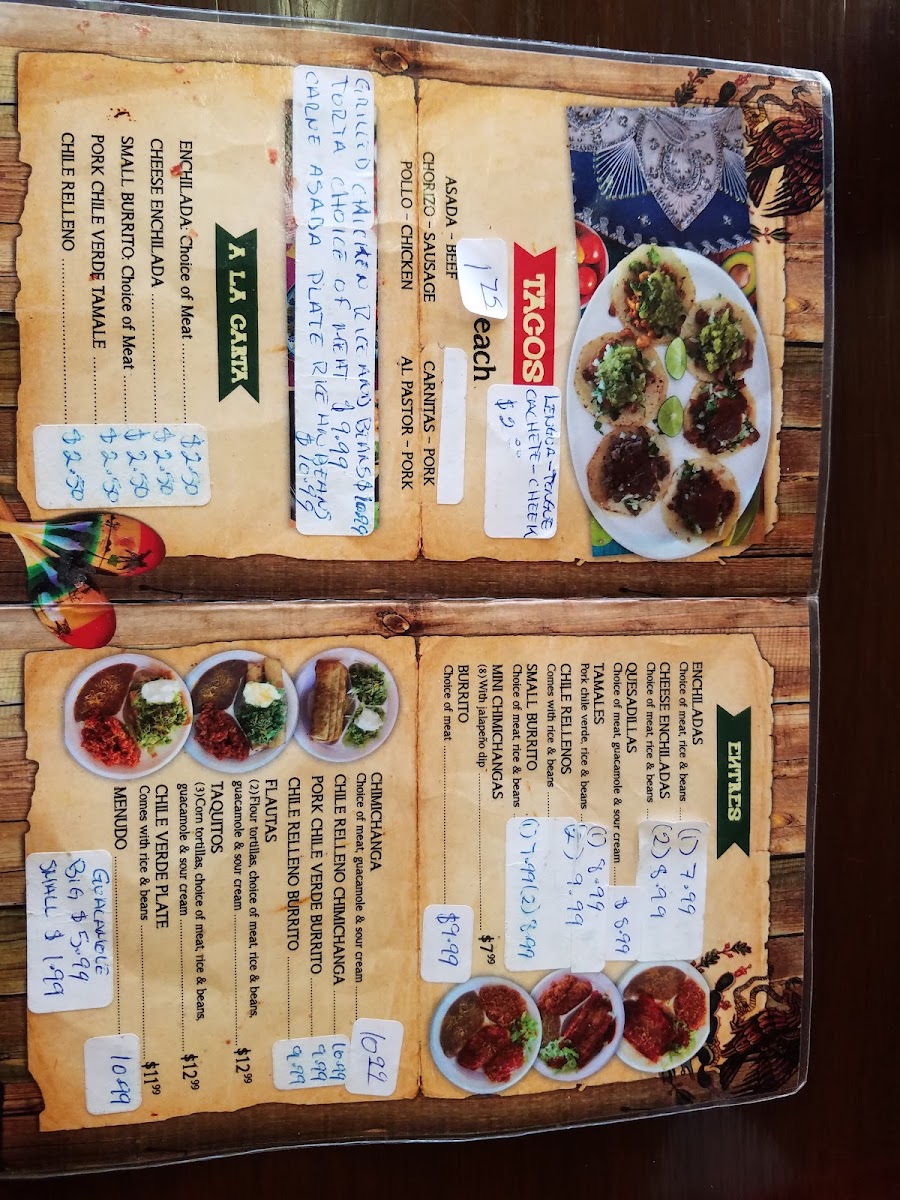 LENGUA-TONGUE
CACHETE-CHEEK
$2.00
TACOS
1.75 each
ASADA - BEEF
CHORIZO - SAUSAGE
POLLO - CHICKEN
CARNITAS - PORK
AL PASTOR - PORK
GRILLED CHICKEN RICE AND BEANS $10.99
TORTA CHOICE OF MEAT $9.99
CARNE ASADA PLATE RICE AND BEANS
$10.99
A LA CARTA
ENCHILADA: Choice of Meat $2.50
CHEESE ENCHILADA $2.50
SMALL BURRITO. Choice of Meat $2.50
PORK CHILE VERDE TAMALE $2.50
CHILE RELLENO $2.50
ENTRES
ENCHILADAS
Choice of meat, rice & beans (1) 7.99
CHEESE ENCHILADAS
Choice of meat, rice & beans (2) 8.99
QUESADILLAS
Choice of meat, guacamole & sour cream $8.99
TAMALES
Pork chile verde, rice & beans (1) 8.99
CHILE RELLENOS (2) 9.99
Comes with rice & beans
SMALL BURRITO
Choice of meat, rice & beans (1) 7.99 (2) 8.99
MINI CHIMICHANGAS
(8) With jalapeño dip $7.99
BURRITO
Choice of meat $9.99
CHIMICHANGA
Choice of meat, guacamole & sour cream 10.99
CHILE RELLENO CHIMICHANGA 10.99
PORK CHILE VERDE BURRITO 9.99
CHILE RELLENO BURRITO 9.99
FLAUTAS
(2) Flour tortillas, choice of meat, rice & beans,
guacamole & sour cream $12.99
TAQUITOS
(3) Corn tortillas, choice of meat, rice & beans,
guacamole & sour cream $12.99
CHILE VERDE PLATE
Comes with rice & beans $11.99
MENUDO 10.99
GUACAMOLE
BIG $5.99
SMALL $1.99